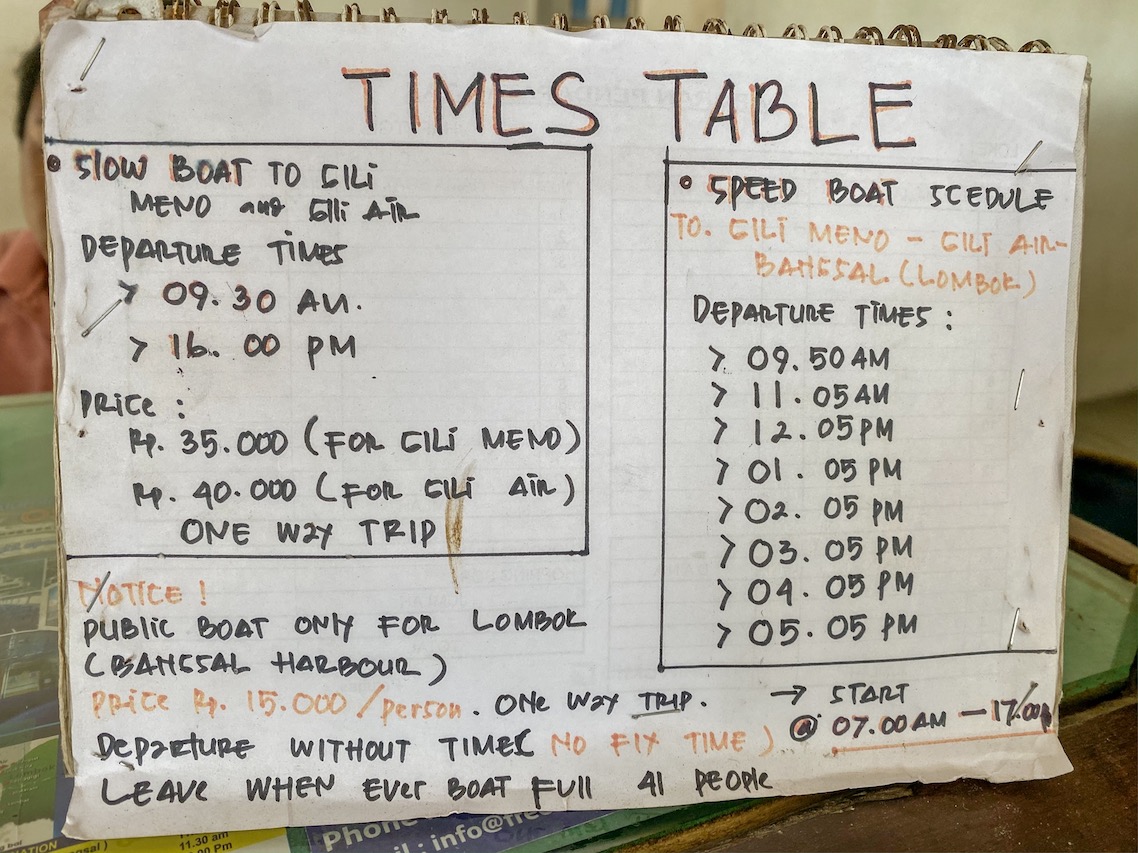 TIMES TABLE
• SLOW BOAT TO GILI
MENO and Gili AIR
DEPARTURE TIMES
> 09.30 AM.
> 16.00 PM
PRICE :
Rp. 35.000 (FOR GILI MENO)
Rp. 40.000 (FOR GILI AIR)
ONE WAY TRIP
• SPEED BOAT SCEDULE
TO. GILI MENO - GILI AIR-
BANGSAL (LOMBOK)
DEPARTURE TIMES :
> 09.50 AM
> 11.05 AM
> 12.05 PM
> 01.05 PM
> 02.05 PM
> 03.05 PM
> 04.05 PM
> 05.05 PM
NOTICE !
PUBLIC BOAT ONLY FOR LOMBOK
(BANGSAL HARBOUR)
PRICE Rp. 15.000 /person. ONE WAY TRIP.
DEPARTURE WITHOUT TIMES NO FIX TIME )
LEAVE WHEN EVER BOAT FULL 41 PEOPLE
→ START
@ 07.00 AM — 17.00
Phone
: info@free
11.30 am
00 Pm